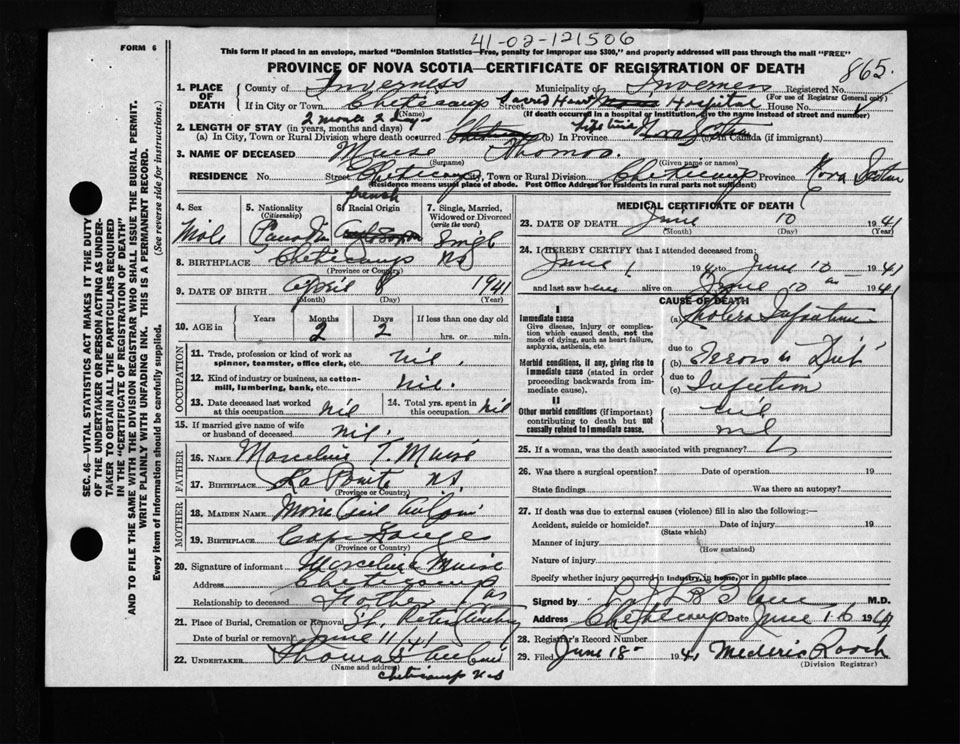 41-02-121506
FORM 6
This form if placed in an envelope, marked "Dominion Statistics—Free, penalty for improper use $300," and properly addressed will pass through the mail "FREE"
PROVINCE OF NOVA SCOTIA—CERTIFICATE OF REGISTRATION OF DEATH
865.
1. PLACE OF DEATH
County of Inverness Municipality of Inverness Registered No.
(For use of Registrar General only)
If in City or Town Cheticamp Street Sacred Heart Hospital House No.
(Name) (If death occurred in a hospital or institution, give the name instead of street and number)
2 months 2 days
2. LENGTH OF STAY (in years, months and days)
(a) In City, Town or Rural Division where death occurred Cheticamp (b) In Province life time Nova Scotia (c) in Canada (if immigrant)
3. NAME OF DECEASED Muise Thomas.
(Surname) (Given name or names)
RESIDENCE No. Street Cheticamp City, Town or Rural Division Cheticamp Province Nova Scotia
(Residence means usual place of abode. Post Office Address for residents in rural parts not sufficient)
4. Sex Male
5. Nationality (Citizenship) Canadian
6. Racial Origin french
7. Single, Married, Widowed or Divorced (write the word) Single
8. BIRTHPLACE Cheticamp NS
(Province or Country)
9. DATE OF BIRTH April 8 1941
(Month) (Day) (Year)
10. AGE in Years Months 2 Days 2 If less than one day old hrs. or min.
OCCUPATION
11. Trade, profession or kind of work as spinner, teamster, office clerk, etc. nil.
12. Kind of industry or business, as cotton-mill, lumbering, bank, etc. nil.
13. Date deceased last worked at this occupation nil
14. Total yrs. spent in this occupation nil
15. If married give name of wife or husband of deceased nil.
FATHER
16. NAME Marcelin T. Muise
17. BIRTHPLACE La Pointe NS.
(Province or Country)
MOTHER
18. MAIDEN NAME
19. BIRTHPLACE
(Province or Country)
20. Signature of informant Marcelin Muise
Address Cheticamp
Relationship to deceased Father
21. Place of Burial, Cremation or Removal St. Peter
Date of burial or removal June 11/41
22. UNDERTAKER Thomas
(Name and address)
Cheticamp N S
MEDICAL CERTIFICATE OF DEATH
23. DATE OF DEATH June 10 1941
(Month) (Day) (Year)
24. I HEREBY CERTIFY that I attended deceased from:
June 1 194 to June 10 1941
and last saw h alive on June 10 1941
CAUSE OF DEATH
I
Immediate cause
Give disease, injury or complication which caused death, not the mode of dying, such as heart failure, asphyxia, asthenia, etc.
(a) Cholera Infantum
due to
Morbid conditions, if any, giving rise to immediate cause (stated in order proceeding backwards from immediate cause).
(b)
due to
(c) Infection
II
Other morbid conditions (if important) contributing to death but not causally related to immediate cause.
nil
nil
25. If a woman, was the death associated with pregnancy?
26. Was there a surgical operation? Date of operation 19
State findings Was there an autopsy?
27. If death was due to external causes (violence) fill in also the following:—
Accident, suicide or homicide? Date of injury 19
(State which)
Manner of injury
(How sustained)
Nature of injury
Specify whether injury occurred in industry, in home, or in public place
Signed by M.D.
Address Cheticamp Date June 16 194
28. Registrar's Record Number
29. Filed June 18 1941 Mederic Roach
(Division Registrar)
SEC. 46—VITAL STATISTICS ACT MAKES IT THE DUTY
OF THE UNDERTAKER OR PERSON ACTING AS UNDER-
TAKER TO OBTAIN ALL THE PARTICULARS REQUIRED
IN THE "CERTIFICATE OF REGISTRATION OF DEATH"
AND TO FILE THE SAME WITH THE DIVISION REGISTRAR WHO SHALL ISSUE THE BURIAL PERMIT.
WRITE PLAINLY WITH UNFADING INK. THIS IS A PERMANENT RECORD.
Every item of information should be carefully supplied. (See reverse side for instructions.)